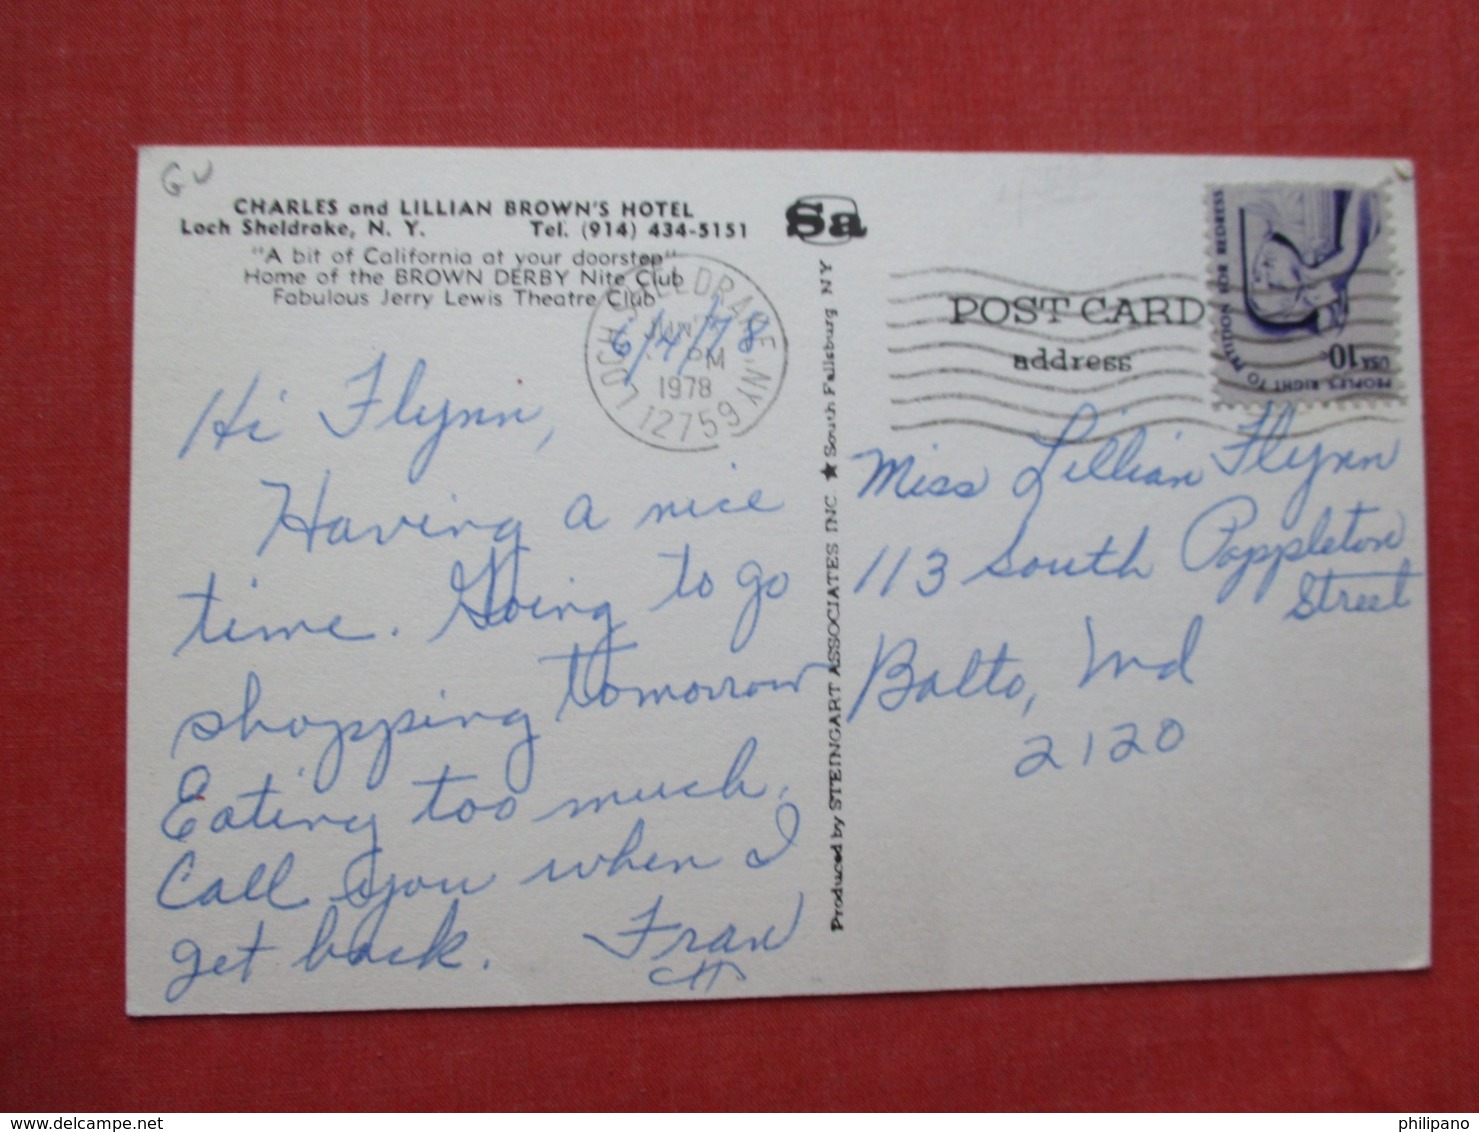 GU
CHARLES and LILLIAN BROWN'S HOTEL
Loch Sheldrake, N. Y. Tel. (914) 434-5151
"A bit of California at your doorstep"
Home of the BROWN DERBY Nite Club
Fabulous Jerry Lewis Theatre Club
6/4/78
Hi Flynn,
Having a nice
time. Going to go
shopping tomorrow
Eating too much.
Call you when I
get back. Fran
LOCH SHELDRAKE, NY
JUN
PM
1978
12759
Sa
Produced by STEINGART ASSOCIATES INC ★ South Fallsburg NY
POST CARD
address
PEOPLE'S RIGHT TO PETITION FOR REDRESS
USA 10c
Miss Lillian Flynn
113 South Poppleton
Street
Balto, Md
2120
philipano